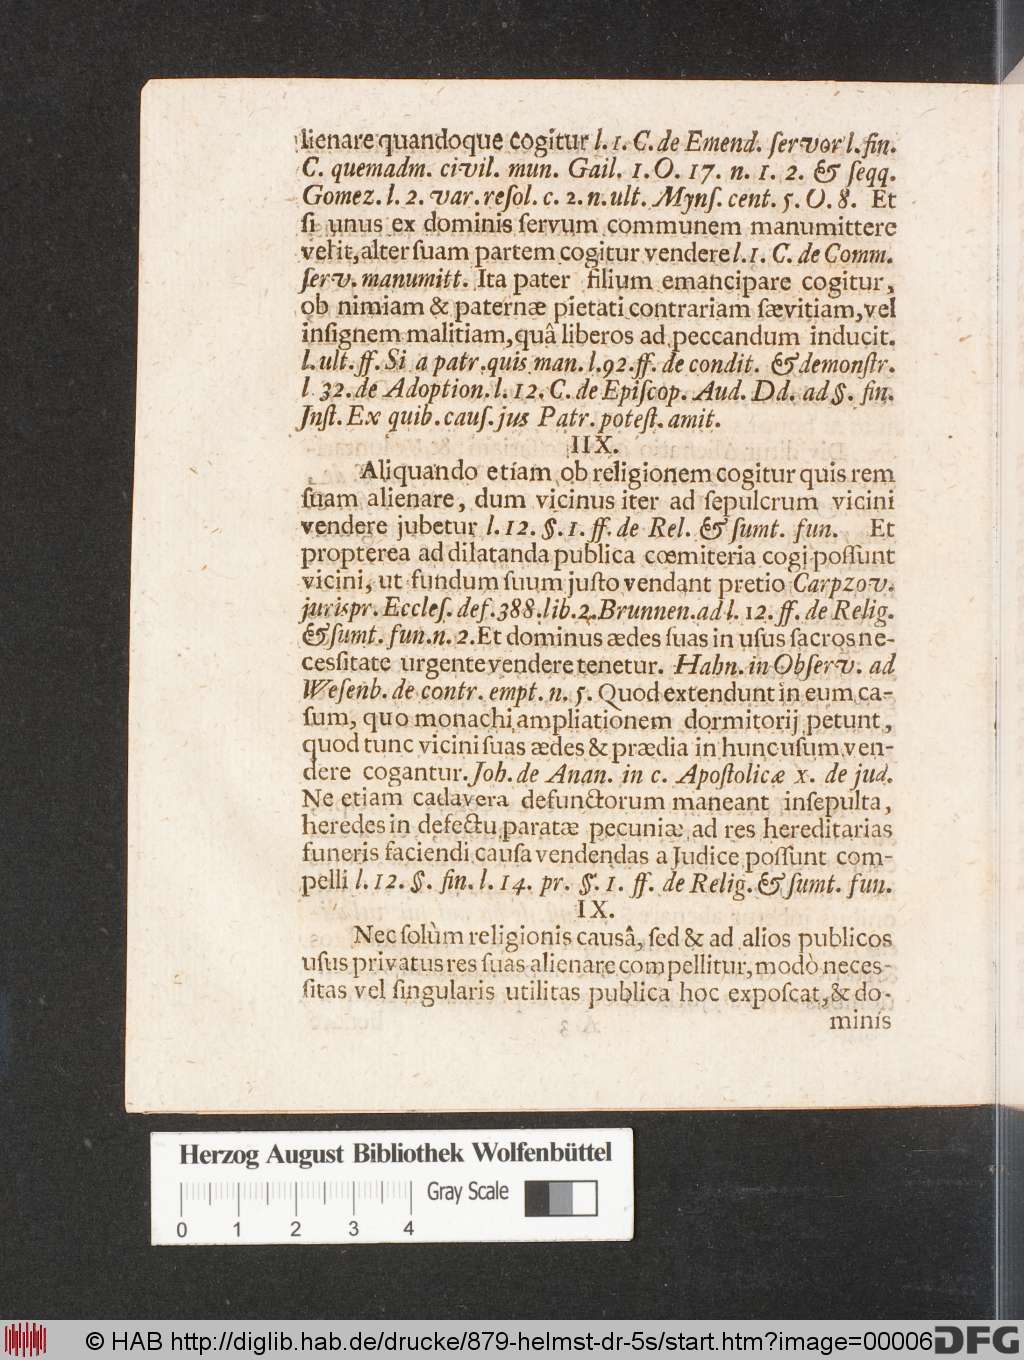 lienare quandoque cogitur l. 1. C. de Emend. ſervor l. fin.
C. quemadm. civil. mun. Gail. 1. O. 17. n. 1. 2. & ſeqq.
Gomez. l. 2. var. reſol. c. 2. n. ult. Mynſ. cent. 5. O. 8. Et
ſi unus ex dominis ſervum communem manumittere
velit, alter ſuam partem cogitur vendere l. 1. C. de Comm.
ſerv. manumitt. Ita pater filium emancipare cogitur,
ob nimiam & paternæ pietati contrariam ſævitiam, vel
inſignem malitiam, quâ liberos ad peccandum inducit.
l. ult. ff. Si a patr. quis man. l. 92. ff. de condit. & demonſtr.
l 32. de Adoption. l. 12. C. de Epiſcop. Aud. Dd. ad §. fin.
Inſt. Ex quib. cauſ. jus Patr. poteſt. amit.
IIX.
Aliquando etiam ob religionem cogitur quis rem
ſuam alienare, dum vicinus iter ad ſepulcrum vicini
vendere jubetur l. 12. §. 1. ff. de Rel. & ſumt. fun. Et
propterea ad dilatanda publica cœmiteria cogi poſſunt
vicini, ut fundum ſuum juſto vendant pretio Carpzov.
jurispr. Eccleſ. def. 388. lib. 2. Brunnen. ad l. 12. ff. de Relig.
& ſumt. fun. n. 2. Et dominus ædes ſuas in uſus ſacros ne-
ceſſitate urgente vendere tenetur. Hahn. in Obſerv. ad
Weſenb. de contr. empt. n. 5. Quod extendunt in eum ca-
ſum, quo monachi ampliationem dormitorij petunt,
quod tunc vicini ſuas ædes & prædia in hunc uſum ven-
dere cogantur. Joh. de Anan. in c. Apoſtolicæ x. de jud.
Ne etiam cadavera defunctorum maneant inſepulta,
heredes in defectu paratæ pecuniæ ad res hereditarias
funeris faciendi cauſa vendendas a Judice poſſunt com-
pelli l. 12. §. fin. l. 14. pr. §. 1. ff. de Relig. & ſumt. fun.
IX.
Nec ſolùm religionis causâ, ſed & ad alios publicos
uſus privatus res ſuas alienare compellitur, modò neceſ-
ſitas vel ſingularis utilitas publica hoc expoſcat, & do-
minis
Herzog August Bibliothek Wolfenbüttel
Gray Scale
0 1 2 3 4
© HAB http://diglib.hab.de/drucke/879-helmst-dr-5s/start.htm?image=00006
DFG